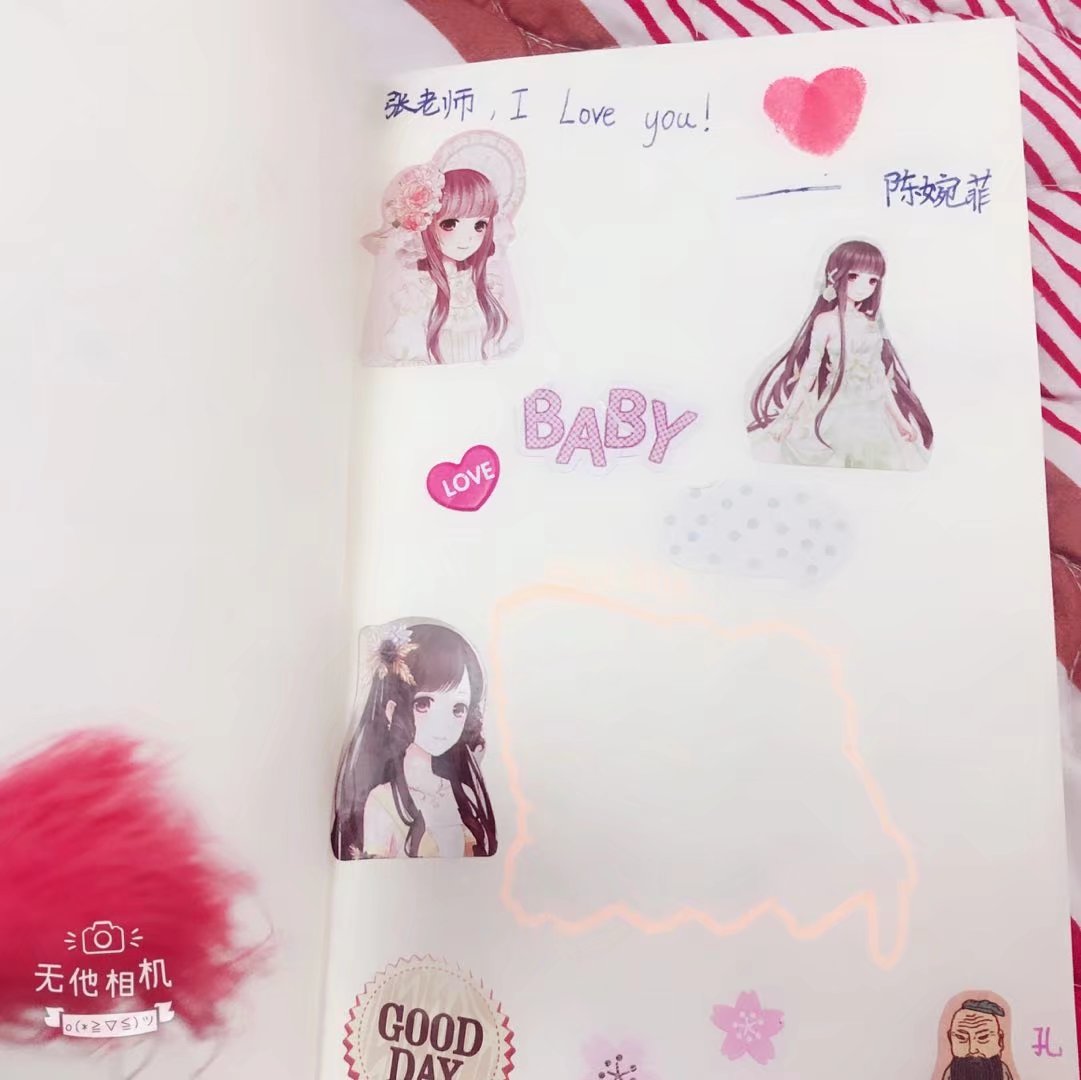 张老师，I Love you!
—— 陈婉菲
BABY
LOVE
GOOD
DAY
孔
无他相机
o(*≧▽≦)ツ